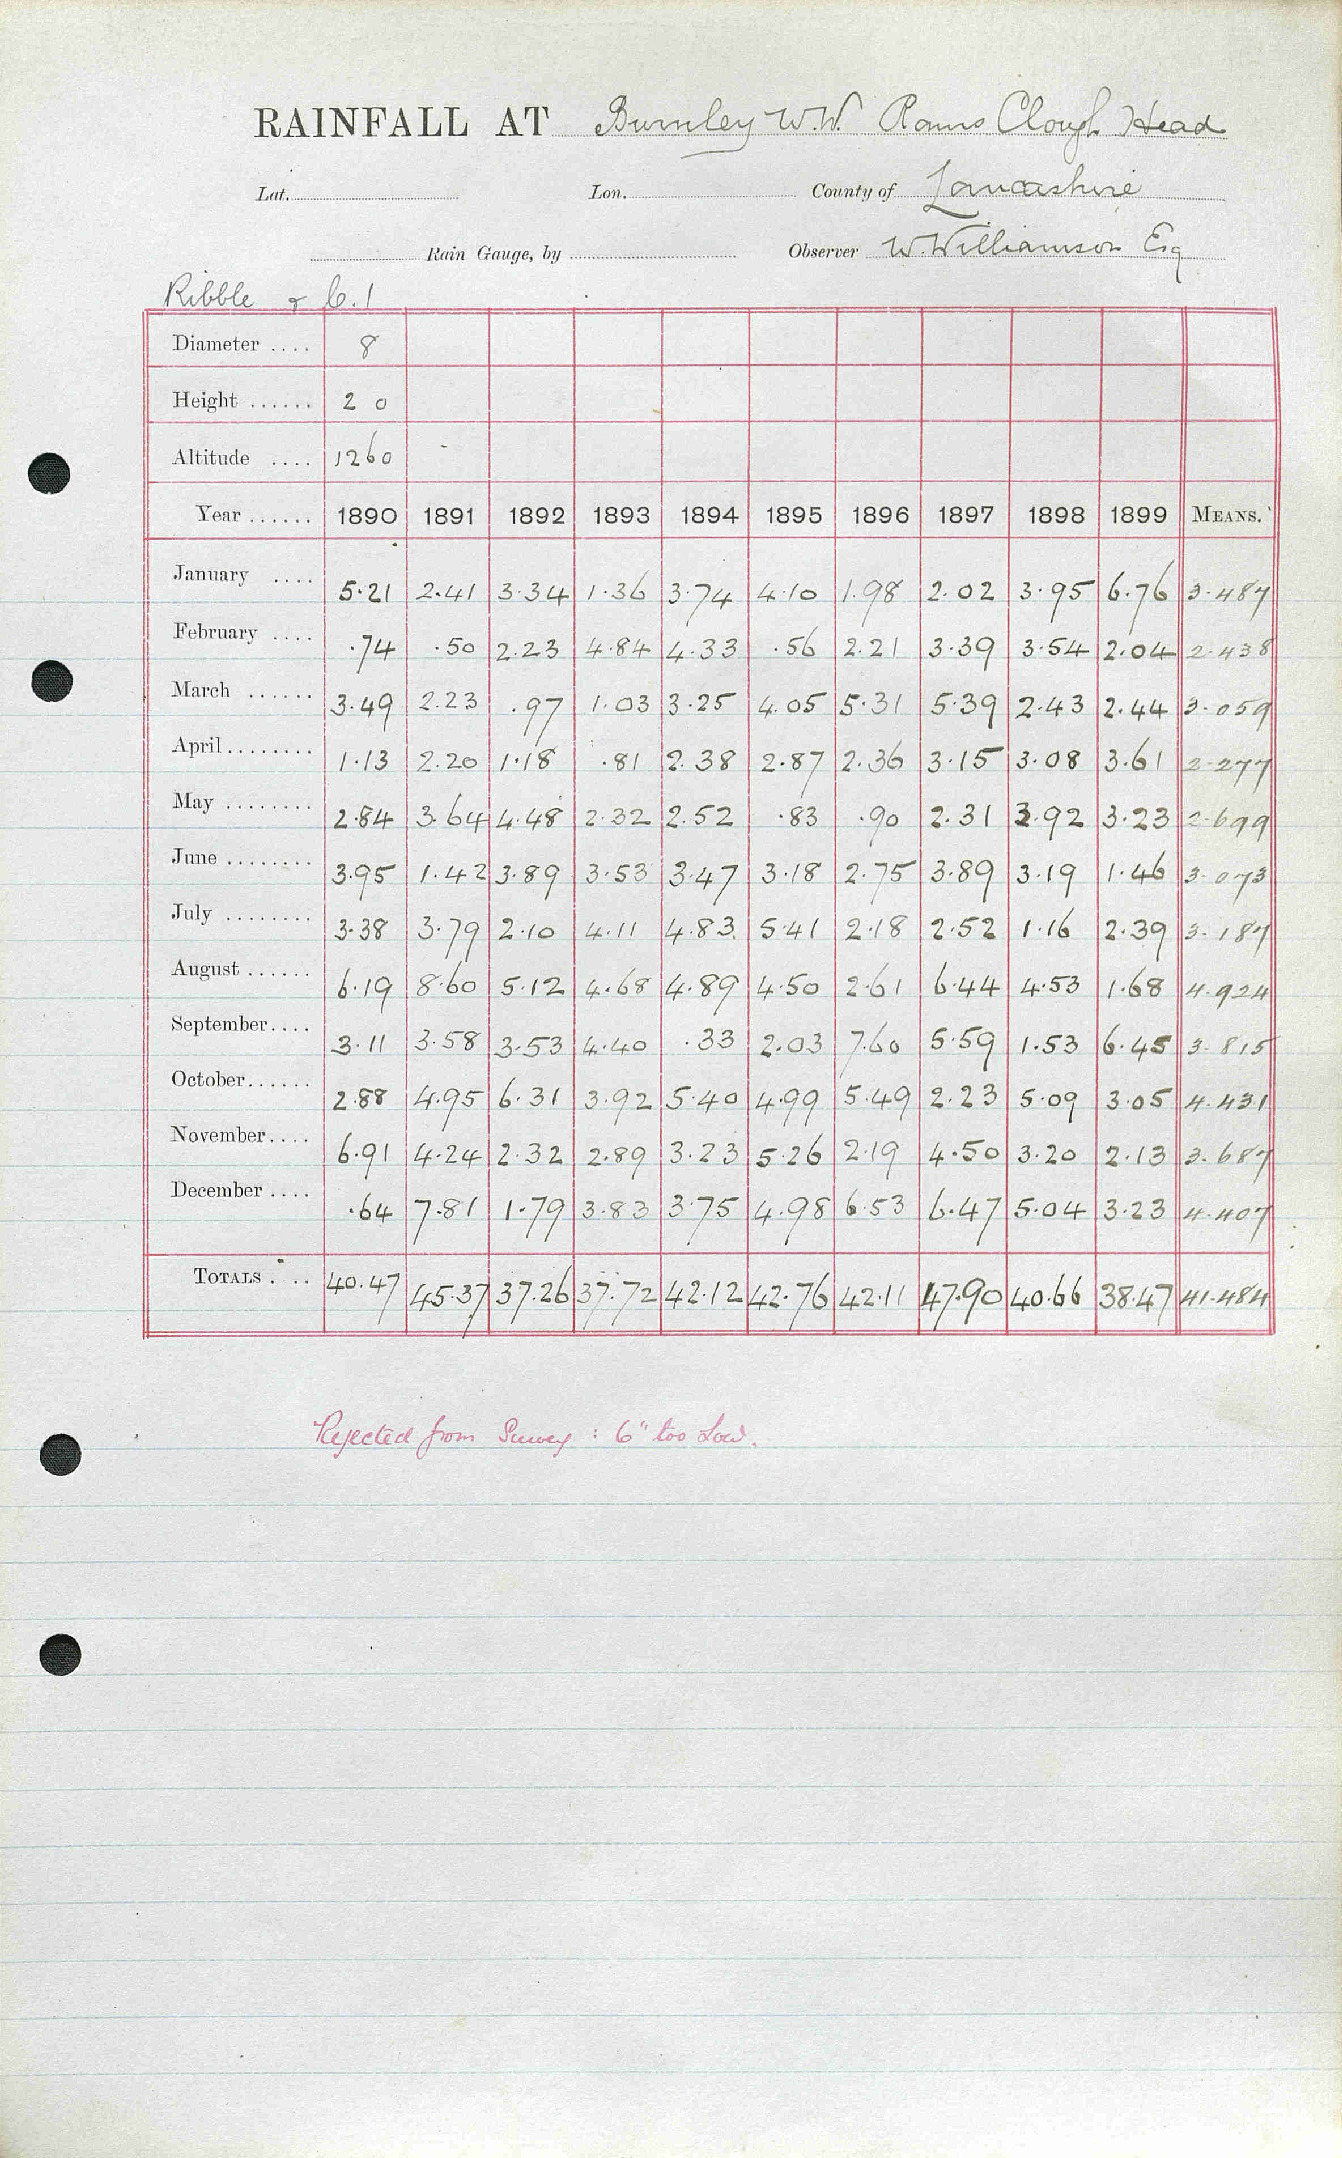 RAINFALL AT Burnley W.W. Rams Clough Head
Lat. Lon. County of Lancashire
Rain Gauge, by Observer W. Williamson Esq
Ribble & C. 1
Diameter .... 8
Height ...... 2 0
Altitude .... 1260
Year ...... 1890 1891 1892 1893 1894 1895 1896 1897 1898 1899 MEANS.
January .... 5.21 2.41 3.34 1.36 3.74 4.10 1.98 2.02 3.95 6.76 3.487
February .... .74 .50 2.23 4.84 4.33 .56 2.21 3.39 3.54 2.04 2.438
March ...... 3.49 2.23 .97 1.03 3.25 4.05 5.31 5.39 2.43 2.44 3.059
April ........ 1.13 2.20 1.18 .81 2.38 2.87 2.36 3.15 3.08 3.61 2.277
May ........ 2.84 3.64 4.48 2.32 2.52 .83 .90 2.31 3.92 3.23 2.699
June ........ 3.95 1.42 3.89 3.53 3.47 3.18 2.75 3.89 3.19 1.46 3.073
July ........ 3.38 3.79 2.10 4.11 4.83 5.41 2.18 2.52 1.16 2.39 3.187
August ...... 6.19 8.60 5.12 4.68 4.89 4.50 2.61 6.44 4.53 1.68 4.924
September .... 3.11 3.58 3.53 4.40 .33 2.03 7.60 5.59 1.53 6.45 3.815
October ...... 2.88 4.95 6.31 3.92 5.40 4.99 5.49 2.23 5.09 3.05 4.431
November .... 6.91 4.24 2.32 2.89 3.23 5.26 2.19 4.50 3.20 2.13 3.687
December .... .64 7.81 1.79 3.83 3.75 4.98 6.53 6.47 5.04 3.23 4.407
TOTALS .... 40.47 45.37 37.26 37.72 42.12 42.76 42.11 47.90 40.66 38.47 41.484
Rejected from Survey : 6" too Low.